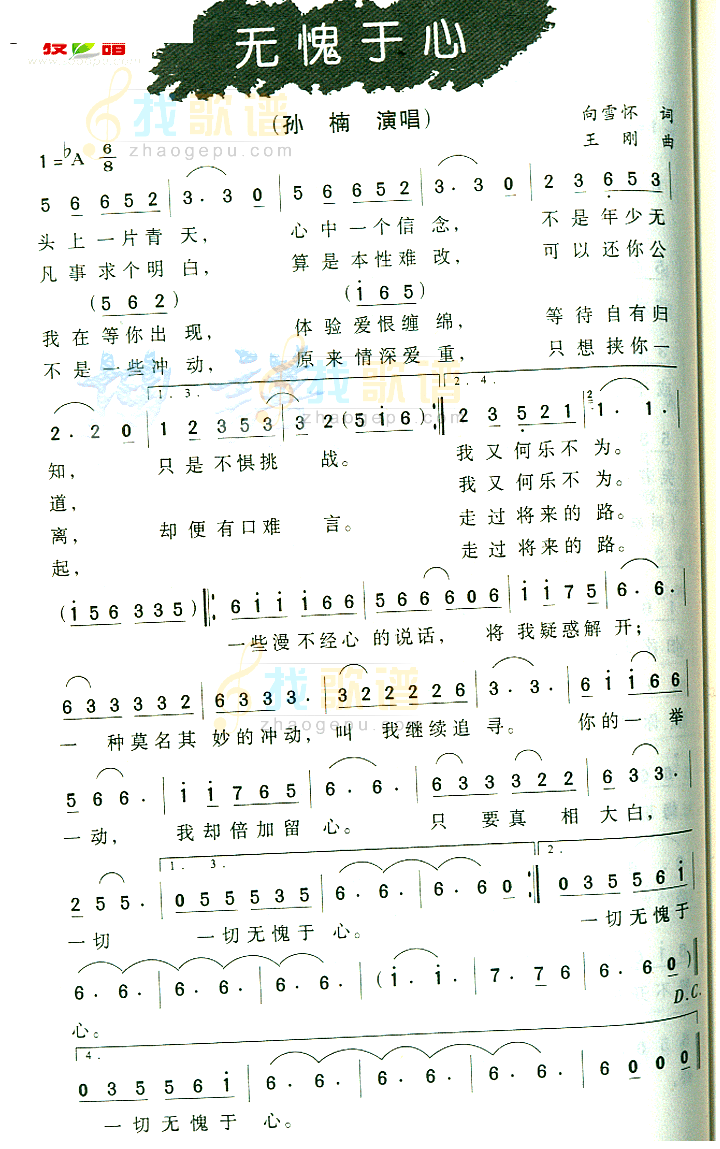 无愧于心
找歌谱
zhaogepu.com
(孙 楠 演唱)
向雪怀 词
王 刚 曲
1=♭A 6/8
5 6 6 5 2 | 3. 3 0 | 5 6 6 5 2 | 3. 3 0 | 2 3 6 5 3
头上一片青天， 心中一个信念， 不是年少无
凡事求个明白， 算是本性难改， 可以还你公
(5 6 2) (i 6 5)
我在等你出现， 体验爱恨缠绵， 等待自有归
不是一些冲动， 原来情深爱重， 只想挟你一
1. 3. 2. 4.
2. 2 0 | 1 2 3 5 3 | 3 2 (5 i 6) :| 2 3 5 2 1 | 1. 1.
知， 只是不惧挑战。 我又何乐不为。
道， 我又何乐不为。
离， 却便有口难言。 走过将来的路。
起， 走过将来的路。
(i 5 6 3 3 5) |: 6 i i i 6 6 | 5 6 6 6 0 6 | i i 7 5 | 6. 6.
一些漫不经心的说话， 将我疑惑解开；
6 3 3 3 3 2 | 6 3 3 3. | 3 2 2 2 2 6 | 3. 3. | 6 i i 6 6
一种莫名其妙的冲动，叫我继续追寻。 你的一举
5 6 6. | i i 7 6 5 | 6. 6. | 6 3 3 3 2 2 | 6 3 3.
一动， 我却倍加留心。 只要真相大白，
1. 3. 2.
2 5 5. | 0 5 5 5 3 5 | 6. 6. | 6. 6 0 :| 0 3 5 5 6 i
一切 一切无愧于心。 一切无愧于
6. 6. | 6. 6. | 6. 6. | (i. i. | 7. 7 6 | 6. 6 0)
心。 D.C.
4.
0 3 5 5 6 i | 6. 6. | 6. 6. | 6. 6. | 6 0 0 0
一切无愧于心。